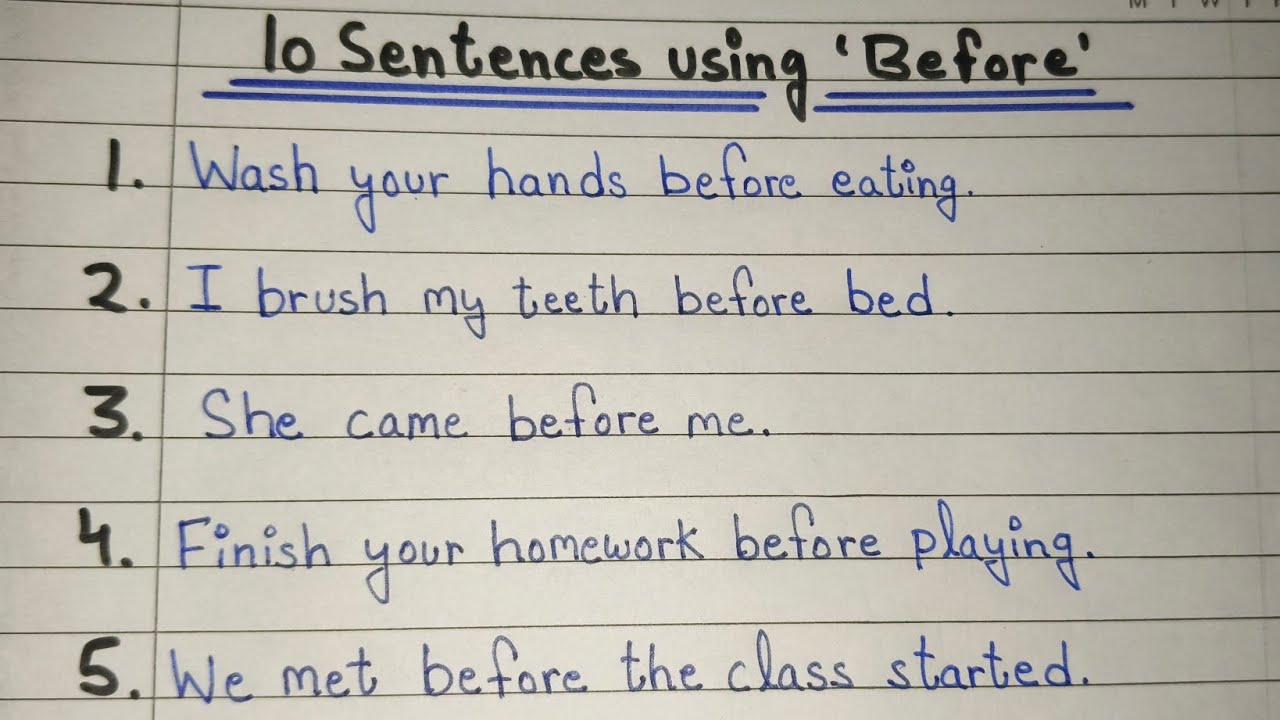 10 Sentences using 'Before'
1. Wash your hands before eating.
2. I brush my teeth before bed.
3. She came before me.
4. Finish your homework before playing.
5. We met before the class started.